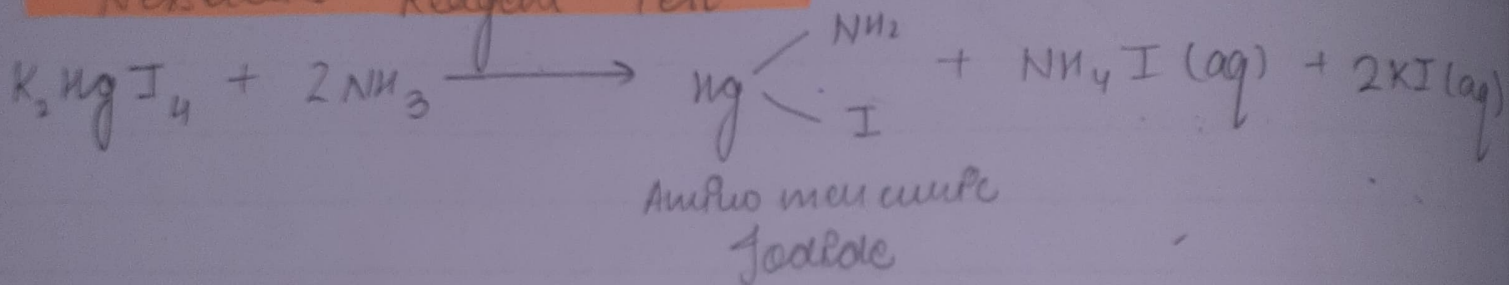 Reagent Test
K₂HgI₄ + 2NH₃ ⟶ Hg(NH₂)(I) + NH₄I (aq) + 2KI (aq)
Amino mercuric
Iodide